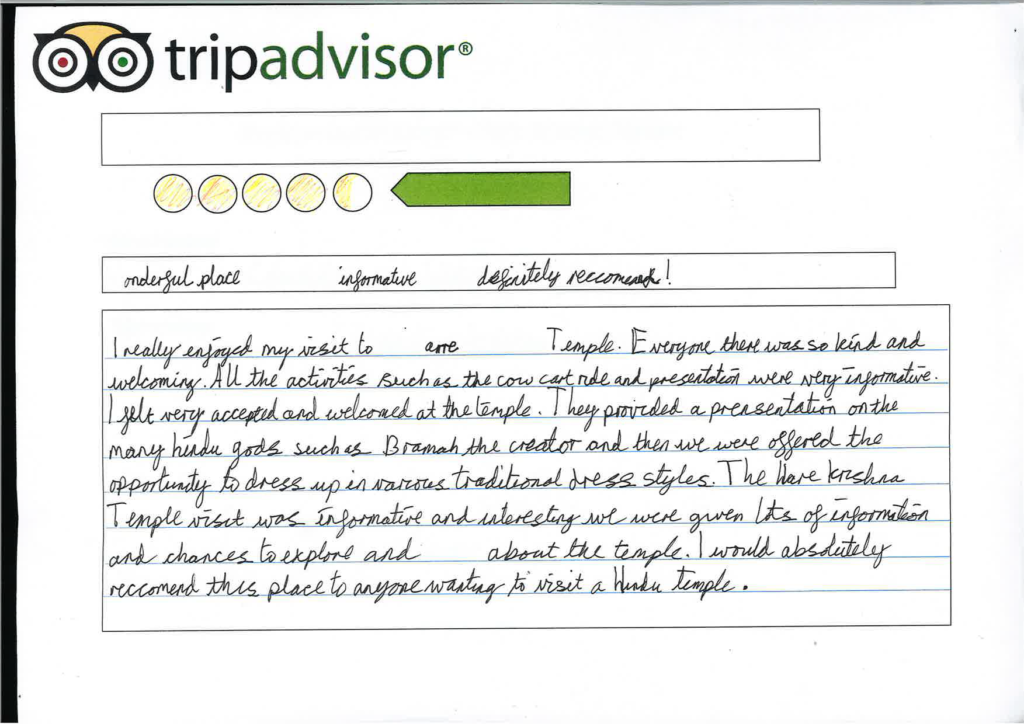 tripadvisor®
onderful place informative definitely reccomend!
I really enjoyed my visit to arre Temple. Everyone there was so kind and
welcoming. All the activities such as the cow cart ride and presentation were very informative.
I felt very accepted and welcomed at the temple. They provided a prensentation on the
many hindu gods such as Bramah the creator and then we were offered the
opportunity to dress up in various traditional dress styles. The Hare Krishna
Temple visit was informative and interesting we were given lots of information
and chances to explore and about the temple. I would absolutely
reccomend this place to anyone wanting to visit a Hindu temple.